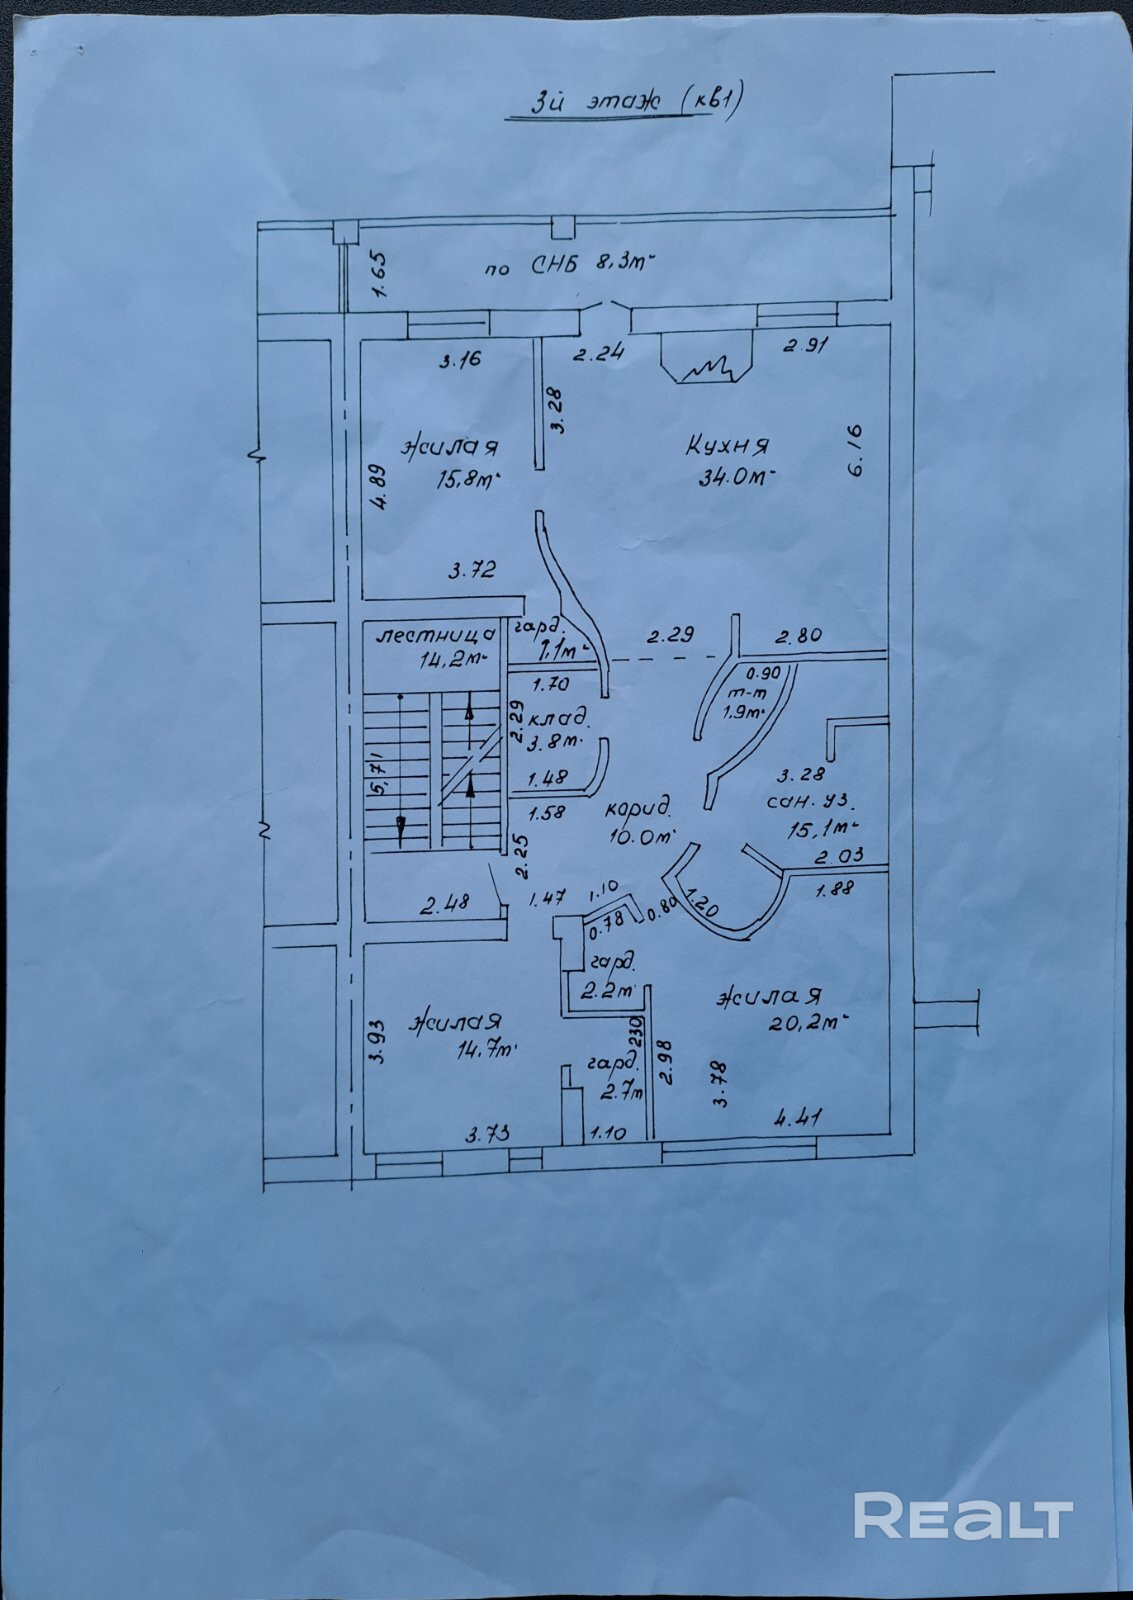 3й этаж (кв1)
1.65
по СНБ 8,3м²
3.16
2.24
2.91
3.28
жилая
15,8м²
4.89
Кухня
34.0м²
6.16
3.72
лестница
14,2м²
гард.
1,1м²
2.29
2.80
1.70
0.90
т-т
1.9м²
2.29
клад.
3.8м²
5,71
1.48
1.58
3.28
сан. уз.
15,1м²
корид.
10.0м²
2.25
2.03
1.88
2.48
1.47
1.10
0.78
0.80
1.20
гард.
2.2м²
жилая
20,2м²
жилая
14.7м²
3.93
230
2.98
гард.
2.7м
3.78
3.73
1.10
4.41
REALT